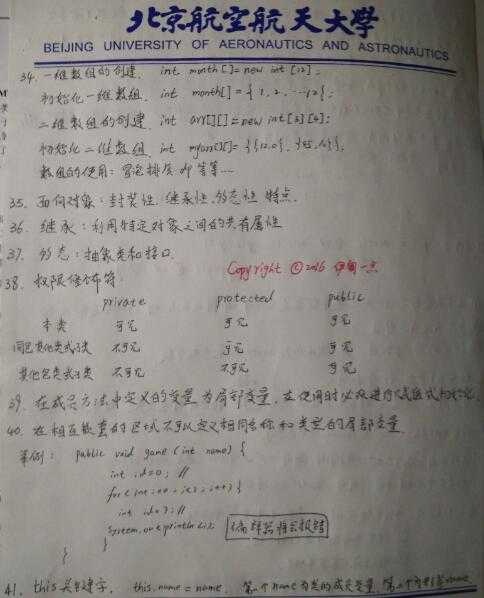 北京航空航天大學
BEIJING UNIVERSITY OF AERONAUTICS AND ASTRONAUTICS
34. 一维数组的创建. int month[]=new int [12];
初始化一维数组. int month[]={1,2,…12};
二维数组的创建. int arr[][]=new int[3][4];
初始化二维数组. int myarr[][]={{12,0},{45,10}};
数组的使用: 冒泡排序 等等…
35. 面向对象: 封装性. 继承性. 多态性 特点.
36. 继承: 利用特定对象之间的共有属性
37. 多态: 抽象类和接口.
Copyright ©2016 伊甸一点
38. 权限修饰符:
private protected public
本类 可见 可见 可见
同包其他类或子类 不可见 可见 可见
其他包类或子类 不可见 不可见 可见
39. 在成员方法中定义的变量为局部变量, 在使用时必须进行
40. 在相互嵌套的区域不可以定义相同名称和类型的局部变量
举例: public void game (int name) {
int id=0; //
for(int i=0; i<3; i++){
int id=7; //
System.out.println(i);
编译器将会报错
}
}
41. this关键字. this.name = name. 第一个name为类的成员变量,